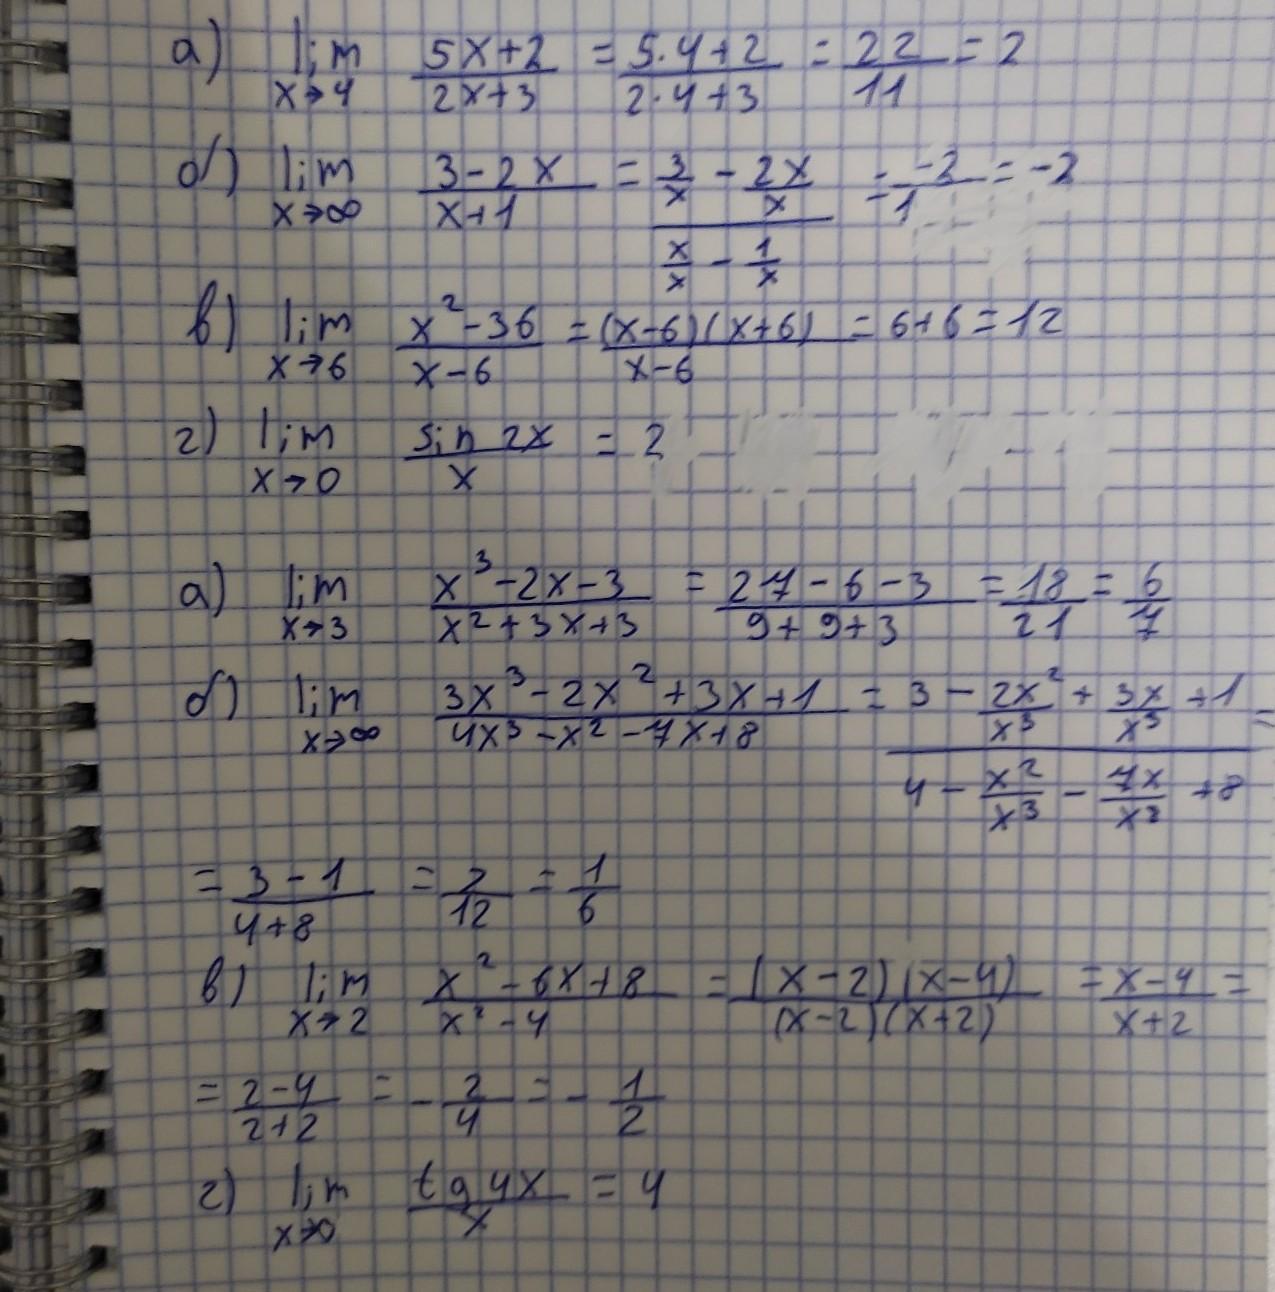 а) lim x→4 (5x+2)/(2x+3) = (5·4+2)/(2·4+3) = 22/11 = 2
б) lim x→∞ (3-2x)/(x+1) = (3/x - 2x/x)/(x/x - 1/x) = -2/1 = -2
в) lim x→6 (x²-36)/(x-6) = (x-6)(x+6)/(x-6) = 6+6 = 12
г) lim x→0 (sin 2x)/x = 2
а) lim x→3 (x³-2x-3)/(x²+3x+3) = (27-6-3)/(9+9+3) = 18/21 = 6/7
б) lim x→∞ (3x³-2x²+3x+1)/(4x³-x²-7x+8) = (3 - 2x²/x³ + 3x/x³ + 1)/(4 - x²/x³ - 7x/x³ + 8) =
= (3-1)/(4+8) = 2/12 = 1/6
в) lim x→2 (x²-6x+8)/(x²-4) = (x-2)(x-4)/((x-2)(x+2)) = (x-4)/(x+2) =
= (2-4)/(2+2) = -2/4 = -1/2
г) lim x→0 (tg 4x)/x = 4